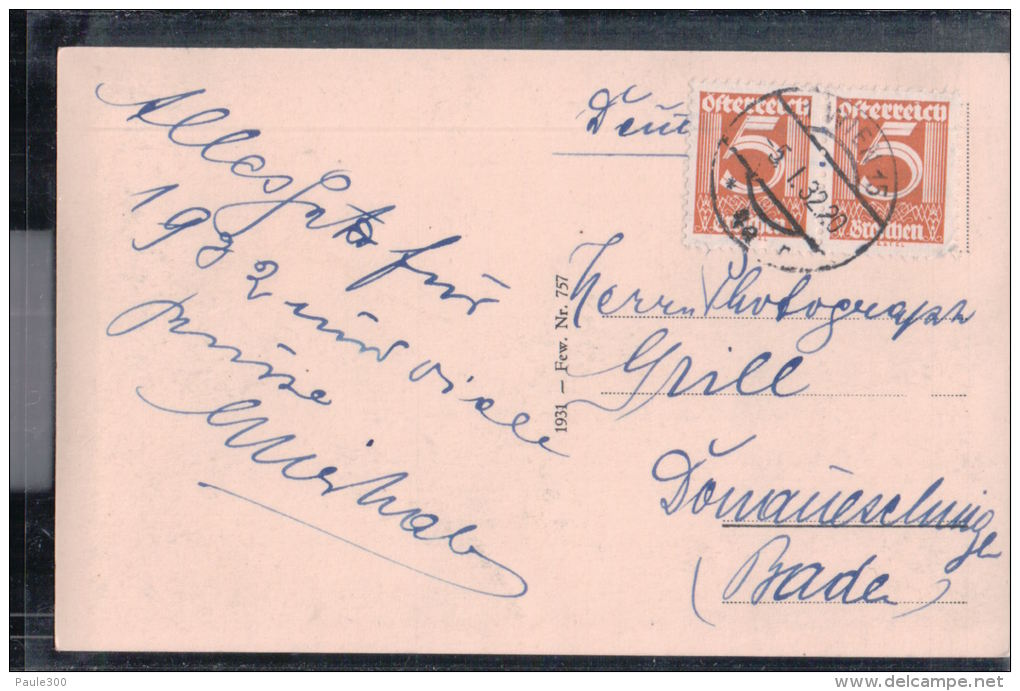 Alles Gute für
1932 und viele
Grüsse
Deut
Österreich
5
Groschen
Österreich
5
Groschen
WIEN 15
5.I.32.20
1931 — Few. Nr. 757
Herrn Photograph
Grill
Donaueschingen
(Baden)
Paule300
www.delcampe.net